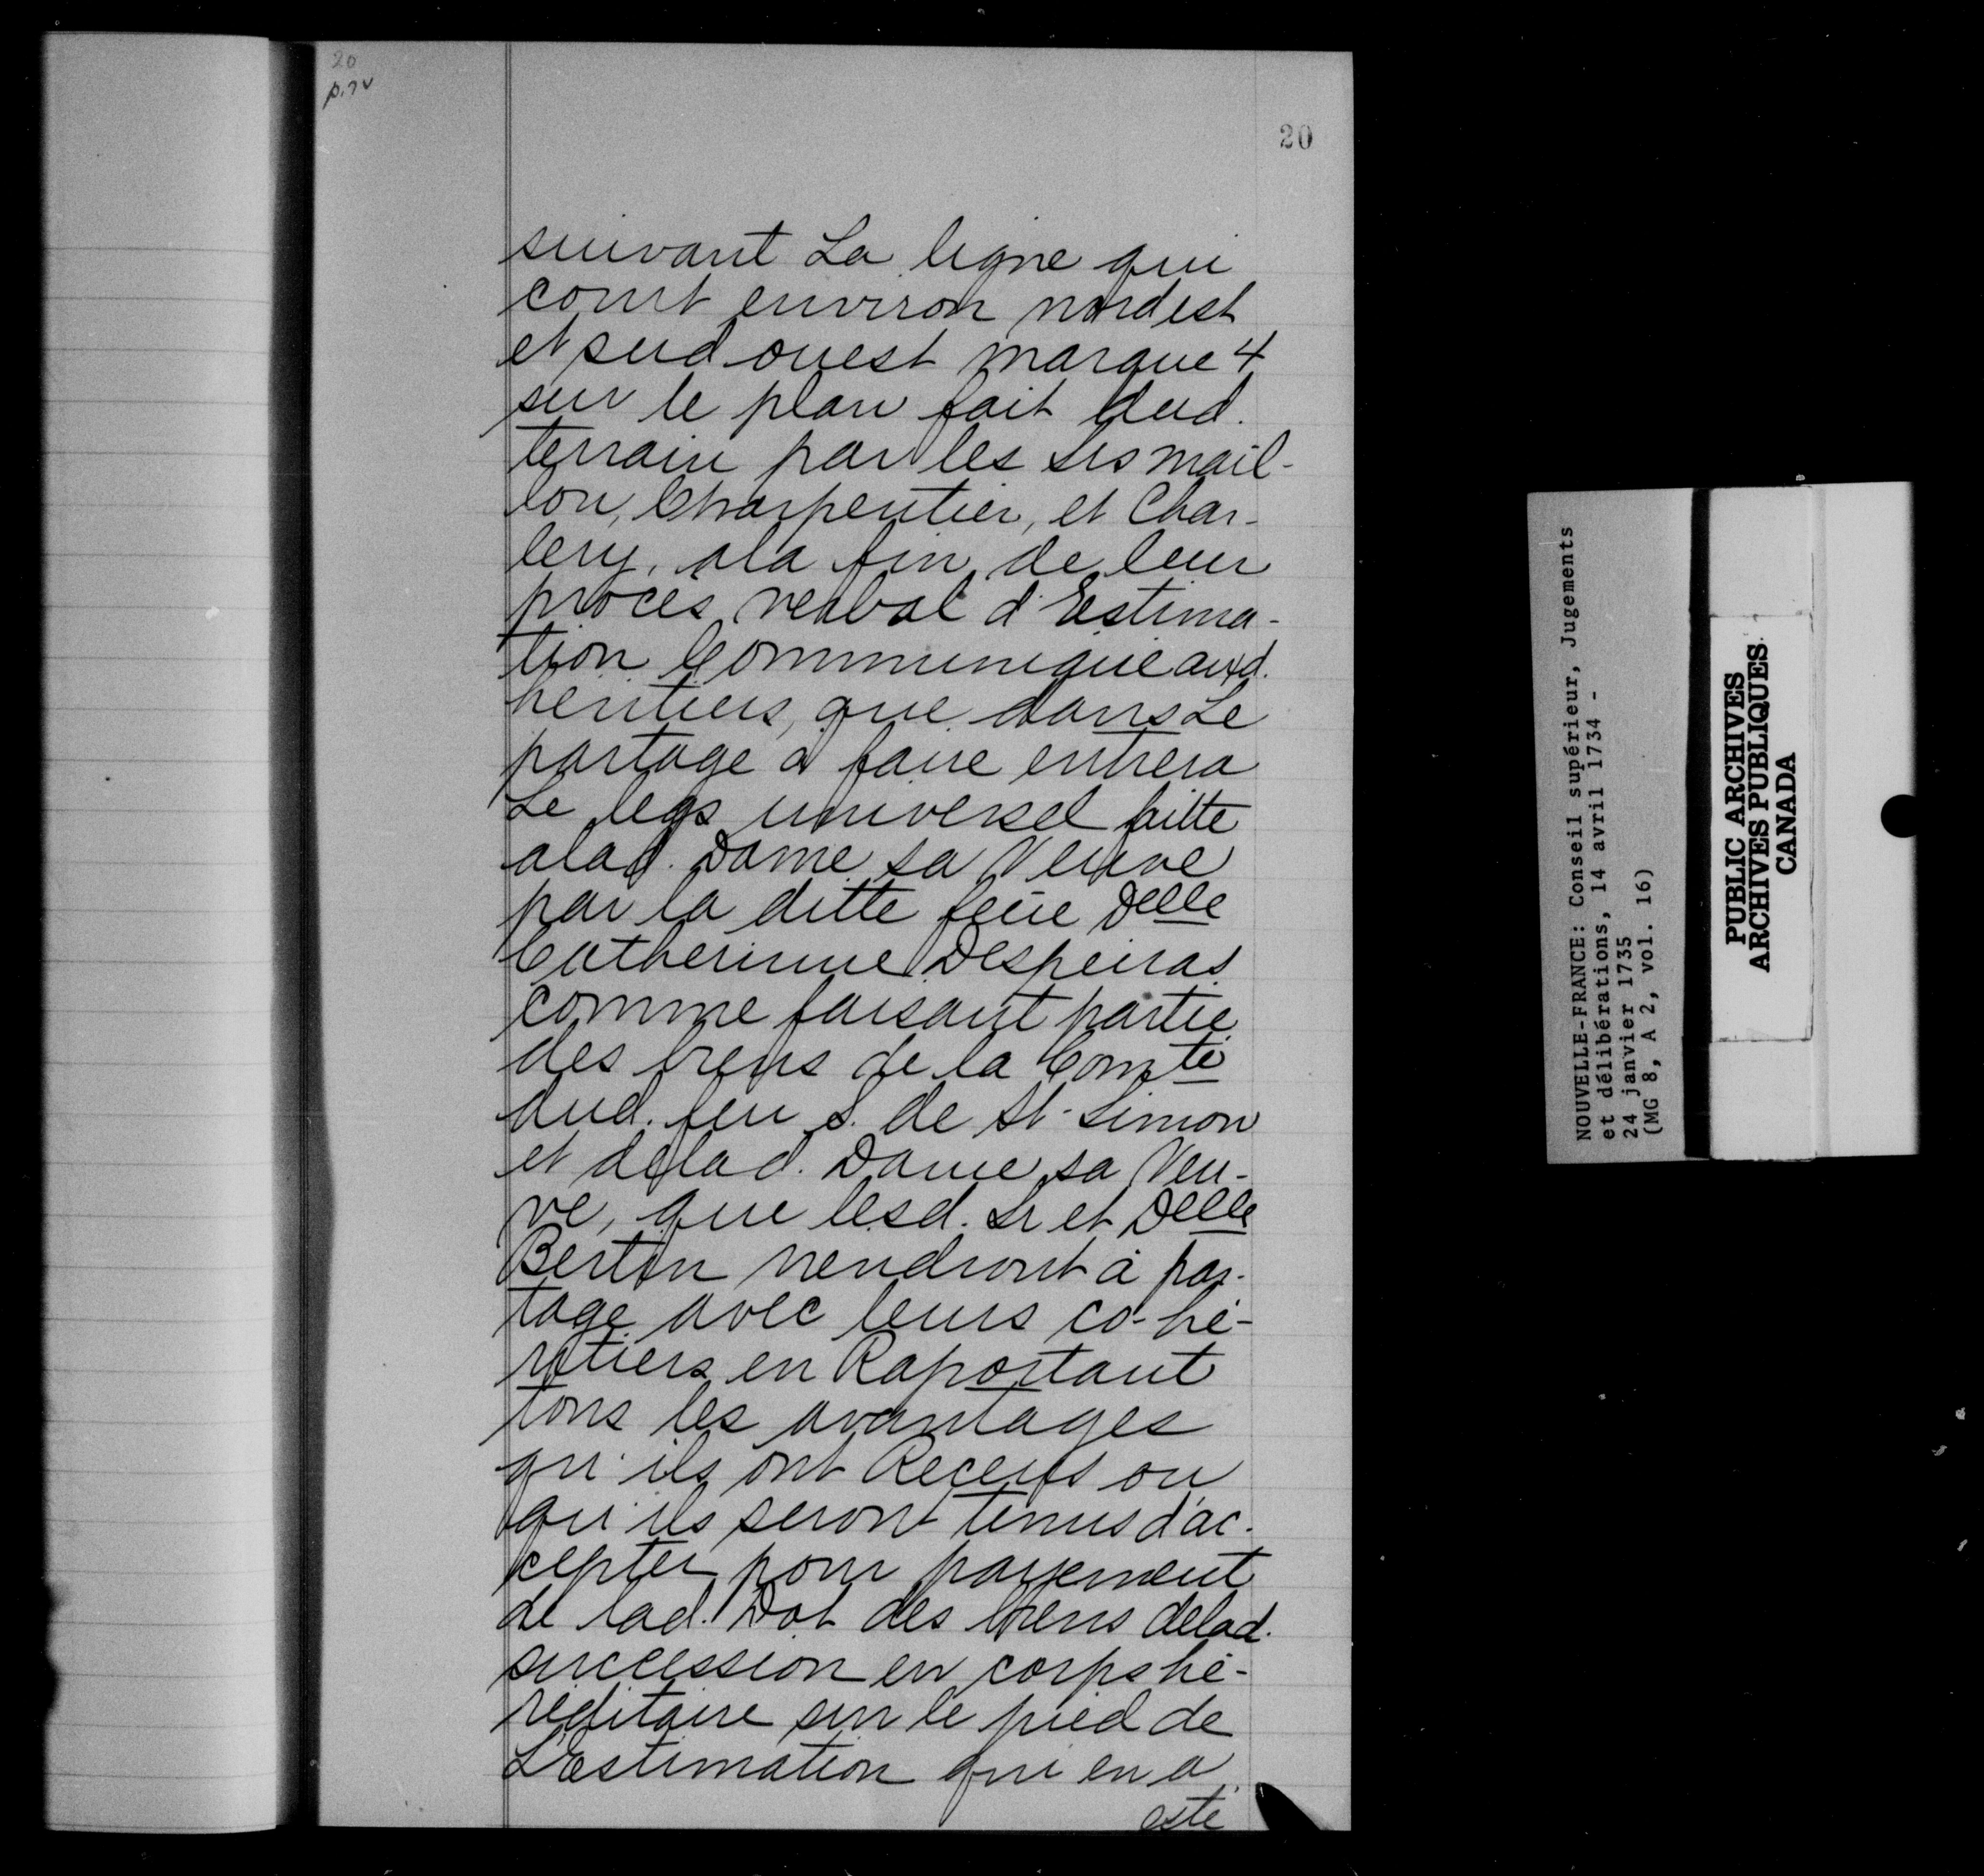 20
p. 7v
20
suivant La ligne qui
court environ nord est
et sud ouest marque 4
sur le plan fait dud.
terrain par les srs mail-
lou, Charpentier, et Char-
lery, ala fin de leur
procès verbal d'Estima-
tion Communiqué auxd.
heritiers, que dans Le
partage a faire entrera
Le legs universel faitte
alad. Dame sa Veuve
par la ditte feüe Delle
Catherinne Despeiras
comme faisant partie
des biens de la Comté
dud. feu S. de St-Simon
et delad. Dame sa Veu-
ve, que lesd. Sr et Delle
Bertin viendront à par-
tage avec leurs co-hé-
ritiers en Raportant
tous les avantages
qu'ils ont Receus ou
qu'ils seront tenus d'ac-
cepter pour payement
de lad. Dot des biens delad.
succession en corps hé-
réditaire sur le pied de
L'Estimation qui en a
esté
NOUVELLE-FRANCE: Conseil supérieur, Jugements
et délibérations, 14 avril 1734 -
24 janvier 1735
(MG 8, A 2, vol. 16)
PUBLIC ARCHIVES
ARCHIVES PUBLIQUES
CANADA